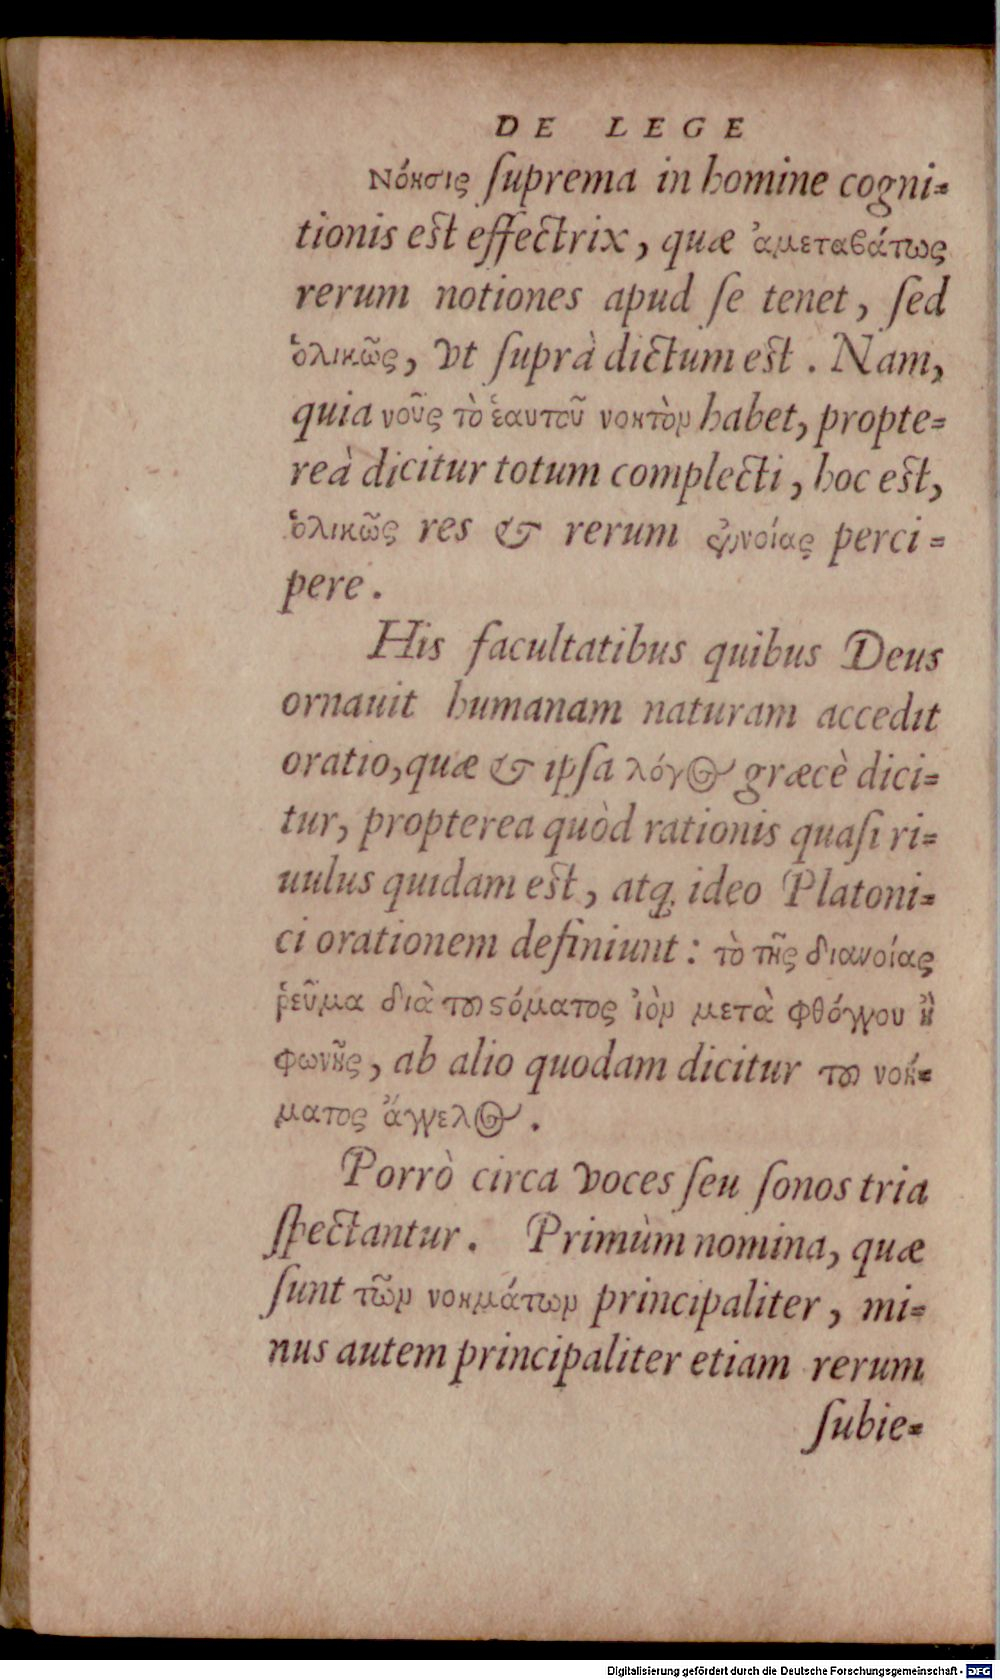 DE LEGE
Νόησις ſuprema in homine cogni-
tionis eſt effectrix, quæ ἀμεταβάτως
rerum notiones apud ſe tenet, ſed
ὁλικῶς, vt ſuprà dictum eſt. Nam,
quia νοῦς τὸ ἑαυτοῦ νοητὸν habet, propte-
reà dicitur totum complecti, hoc eſt,
ὁλικῶς res & rerum ἐννοίας perci-
pere.
His facultatibus quibus Deus
ornauit humanam naturam accedit
oratio, quæ & ipſa λόγος græcè dici-
tur, propterea quòd rationis quaſi ri-
uulus quidam eſt, atq; ideo Platoni-
ci orationem definiunt: τὸ τῆς διανοίας
ῥεῦμα διὰ τοῦ ϛόματος ἰὸν μετὰ φθόγγου ἢ
φωνῆς, ab alio quodam dicitur τοῦ νοή-
ματος ἄγγελος.
Porrò circa voces ſeu ſonos tria
ſpectantur. Primùm nomina, quæ
ſunt τῶν νοημάτων principaliter, mi-
nus autem principaliter etiam rerum
ſubie-
Digitalisierung gefördert durch die Deutsche Forschungsgemeinschaft - DFG